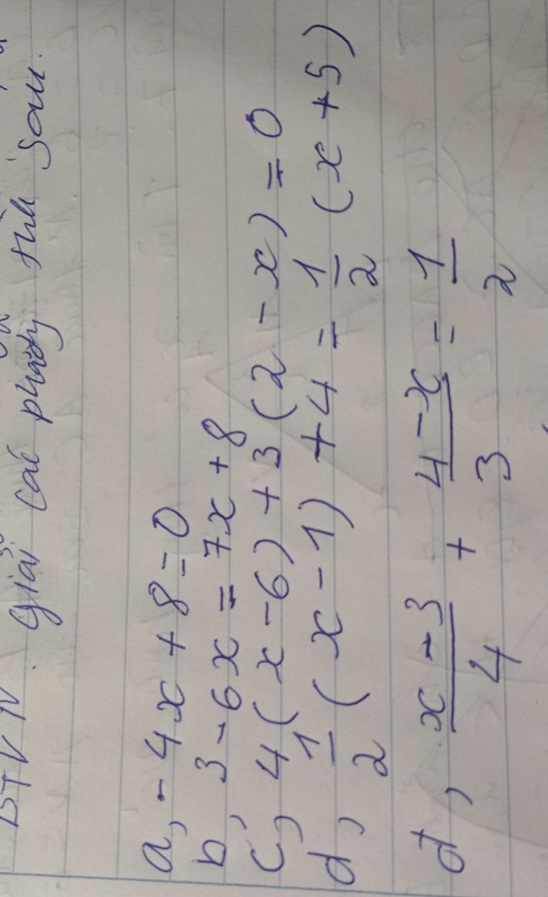 BTVN. Giải các phương trình sau.
a, -4x + 8 = 0
b, 3 - 6x = 7x + 8
c, 4(x - 6) + 3(2 - x) = 0
d, 1/2 (x - 1) + 4 = 1/2 (x + 5)
đ, (x - 3)/4 + (4 - x)/3 = 1/2